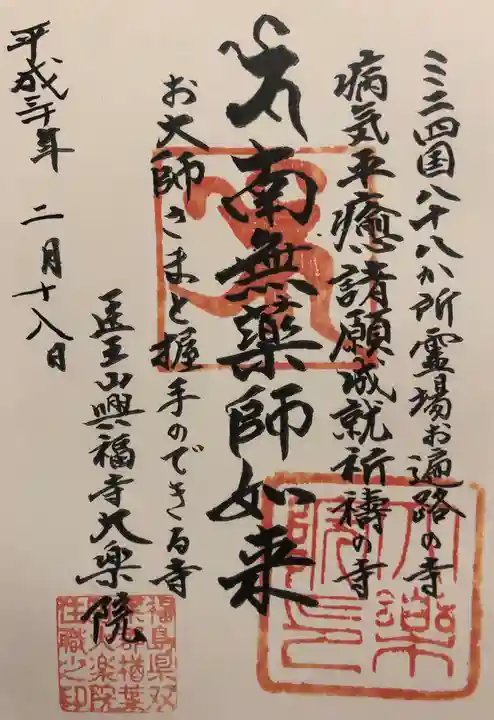 ミニ四国八十八か所霊場お遍路の寺
病気平癒諸願成就祈祷の寺
南無薬師如来
お大師さまと握手のできる寺
医王山興福寺大楽院
平成三十年 二月十八日
大楽院
福島県双
葉郡楢葉
大楽院
住職之印